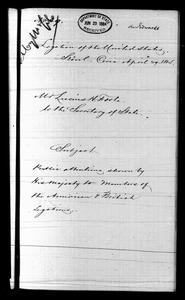 DEPARTMENT OF STATE
JUN 23 1884
RECEIVED
Legation of the United States,
Söul Corea April 29 1884.
Mr Lucius H. Foote
to the Secretary of State.
Subject
Public attentions, shown by
His Majesty to Members
of the American & British
Legations.